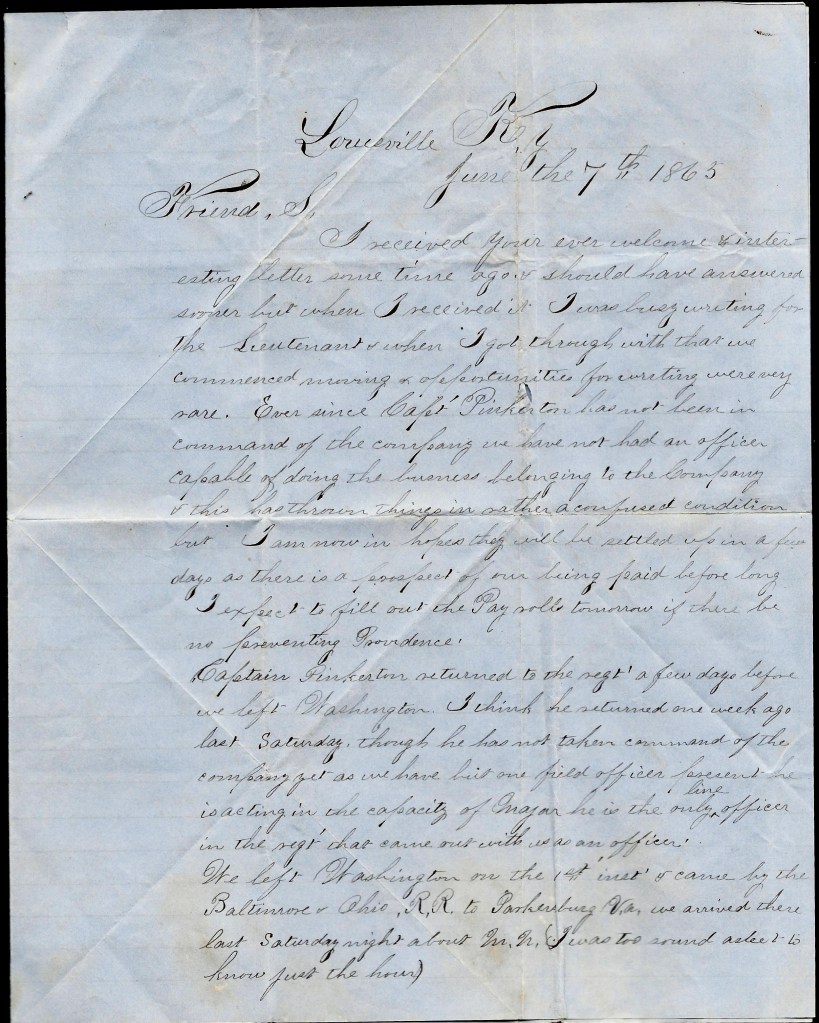 Louisville Ky
June the 7th 1865
Friend, S,
I received your ever welcome & inter-
esting letter some time ago & should have answered
sooner but when I received it I was busy writing for
the Lieutenant & when I got through with that we
commenced moving & opportunities for writing were very
rare. Ever since Capt Pinkerton has not been in
command of the company we have not had an officer
capable of doing the busness belonging to the Company
& this has thrown things in rather a confused condition
but I am now in hopes they will be settled up in a few
days as there is a prospect of our being paid before long
I expect to fill out the Pay rolls tomorrow if there be
no preventing Providence.
Captain Pinkerton returned to the regt a few days before
we left Washington. I think he returned one week ago
last Saturday, though he has not taken command of the
company yet as we have but one field officer present he
is acting in the capacity of Major he is the only line officer
in the regt that came out with us as an officer.
We left Washington on the 1st inst & came by the
Baltimrore & Ohio, R,R. to Parkersburg Va, we arrived there
last Saturday night about M.N. (I was too sound asleet to
know just the hour)